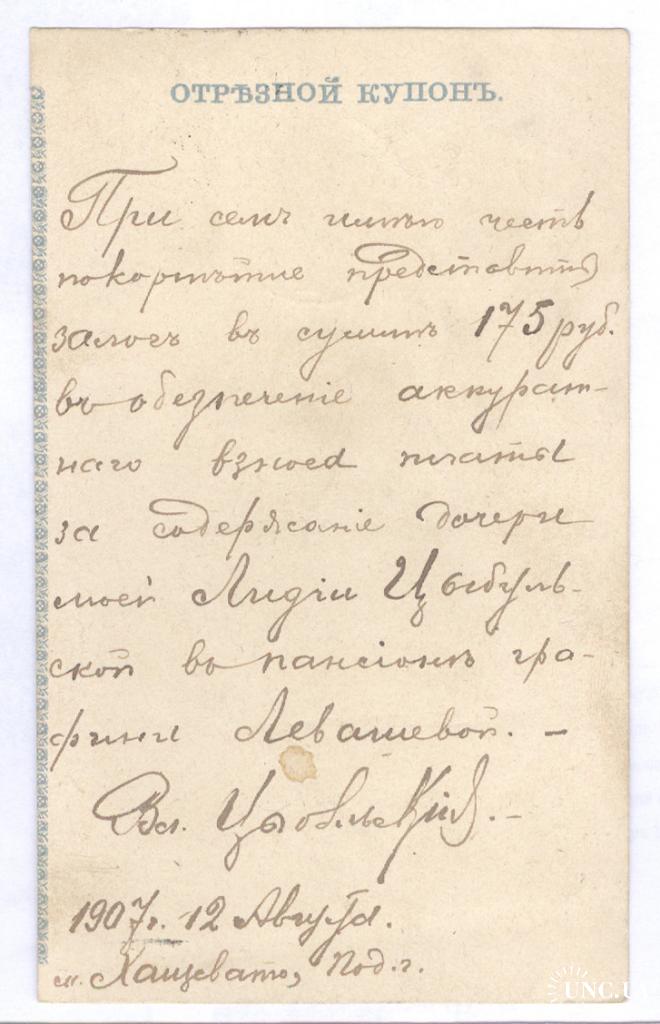 ОТРѢЗНОЙ КУПОНЪ.
При семъ имѣю честь
покорнѣйше представить
залогъ въ суммѣ 175 руб.
въ обезпеченіе аккурат-
наго взноса платы
за содержаніе дочери
моей Лидіи Цыбуль-
ской въ пансіонѣ гра-
фини Левашевой. –
Вл. Цыбульскій. –
1907 г. 12 Августа.
м. Хащевато, Под. г.
UNC.UA